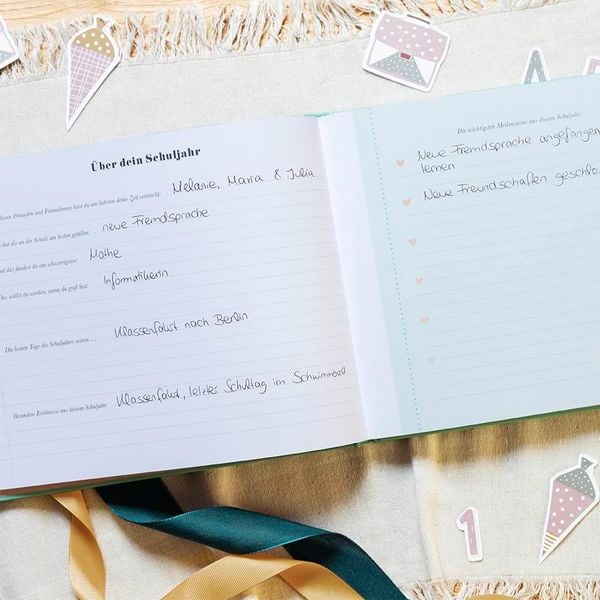 Über dein Schuljahr
diesen Freunden und Freundinnen hast du am liebsten deine Zeit verbracht: Melanie, Maria & Julia
hat dir an der Schule am besten gefallen: neue Fremdsprache
und das fandest du am schwierigsten: Mathe
Das willst du werden, wenn du groß bist: Informatikerin
Die besten Tage des Schuljahres waren ... Klassenfahrt nach Berlin
Besondere Erlebnisse aus diesem Schuljahr: Klassenfahrt, letzter Schultag im Schwimmbad
Die wichtigsten Meilensteine aus diesem Schuljahr:
Neue Fremdsprache angefangen
lernen
Neue Freundschaften geschlo
A
1